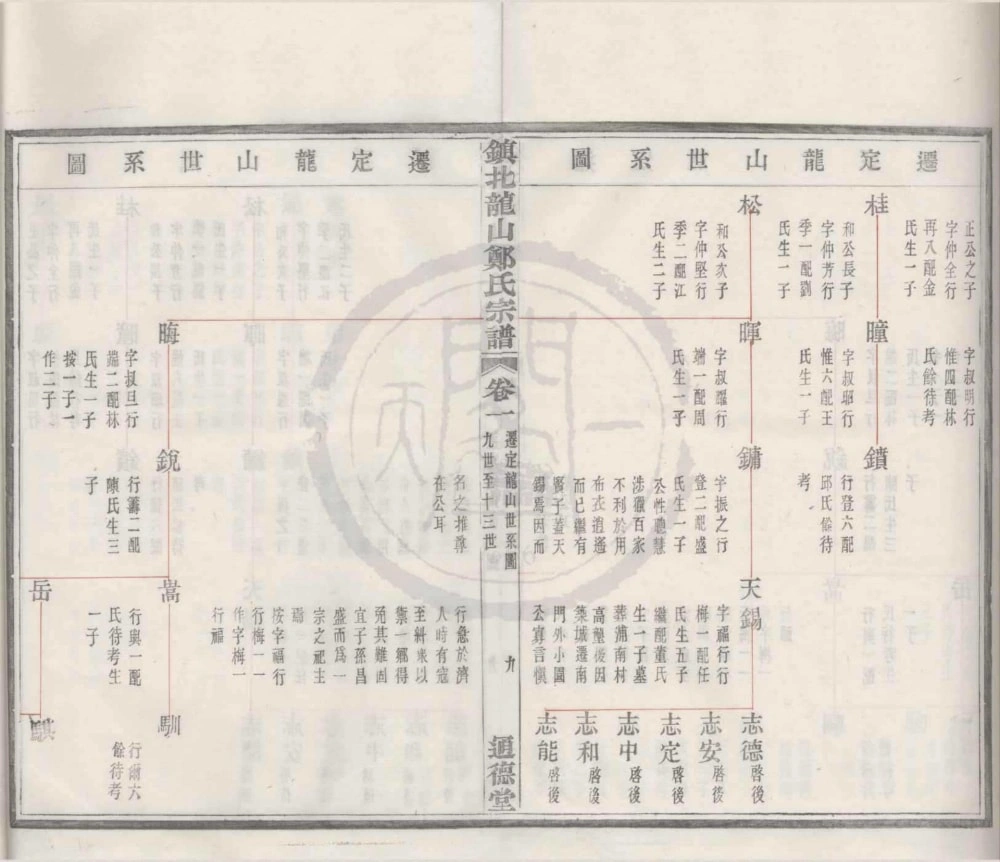 遷定龍山世系圖
桂
正公之子
字仲全行
再八配金
氏生一子
和公長子
字仲芳行
季一配劉
氏生一子
松
和公次子
字仲堅行
季二配江
氏生二子
曈
字叔明行
惟四配林
氏餘待考
字叔昭行
惟六配王
氏生一子
暉
字叔曜行
端一配周
氏生一子
鐀
行登六配
邱氏餘待
考
鏞
字振之行
登二配盛
氏生一子
公性聰慧
涉獵百家
不利於用
布衣逍遙
而已繼有
賢子蓋天
錫焉因而
天錫
字福行行
梅一配任
氏生五子
繼配董氏
生一子墓
葬蒲南村
高墾後因
築城遷南
門外小園
公寡言慎
志德 啓後
志安 啓後
志定 啓後
志中 啓後
志和 啓後
志能 啓後
鎮北龍山鄭氏宗譜
卷一
遷定龍山世系圖
九世至十三世
九
通德堂
遷定龍山世系圖
晦
字叔旦行
端二配林
氏生一子
按一子一
作二子
名之推尊
在公耳
銳
行籌二配
陳氏生三
子
行急於濟
人時有寇
至斜衆以
禦一鄉得
免其難固
宜子孫昌
盛而爲一
宗之祀主
焉
按字福行
行梅一一
作字梅一
行福
嵩
行與一配
氏待考生
一子
岳
馴
行爾六
餘待考
騏